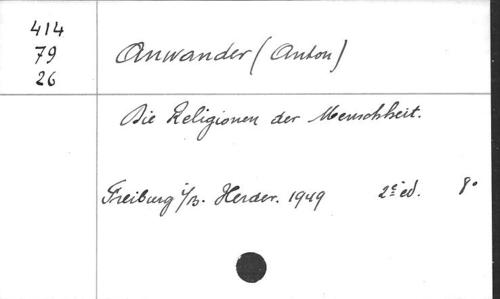 414
79
26
Anwander (Anton)
Die Religionen der Menschheit.
Freiburg i/B. Herder. 1949 2e ed. 8o